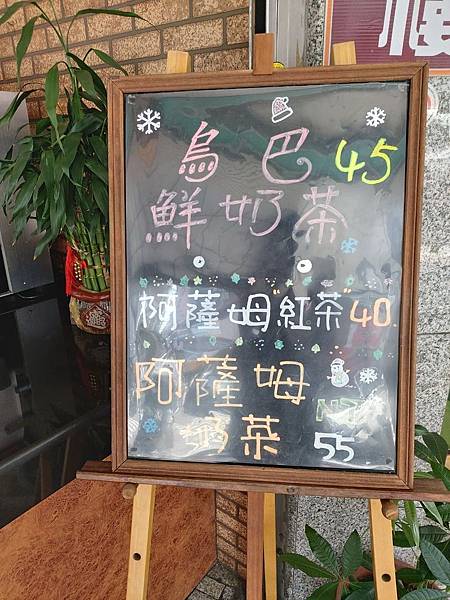 烏巴 45
鮮奶茶
柯薩姆"紅茶" 40.
阿薩姆
奶茶 55